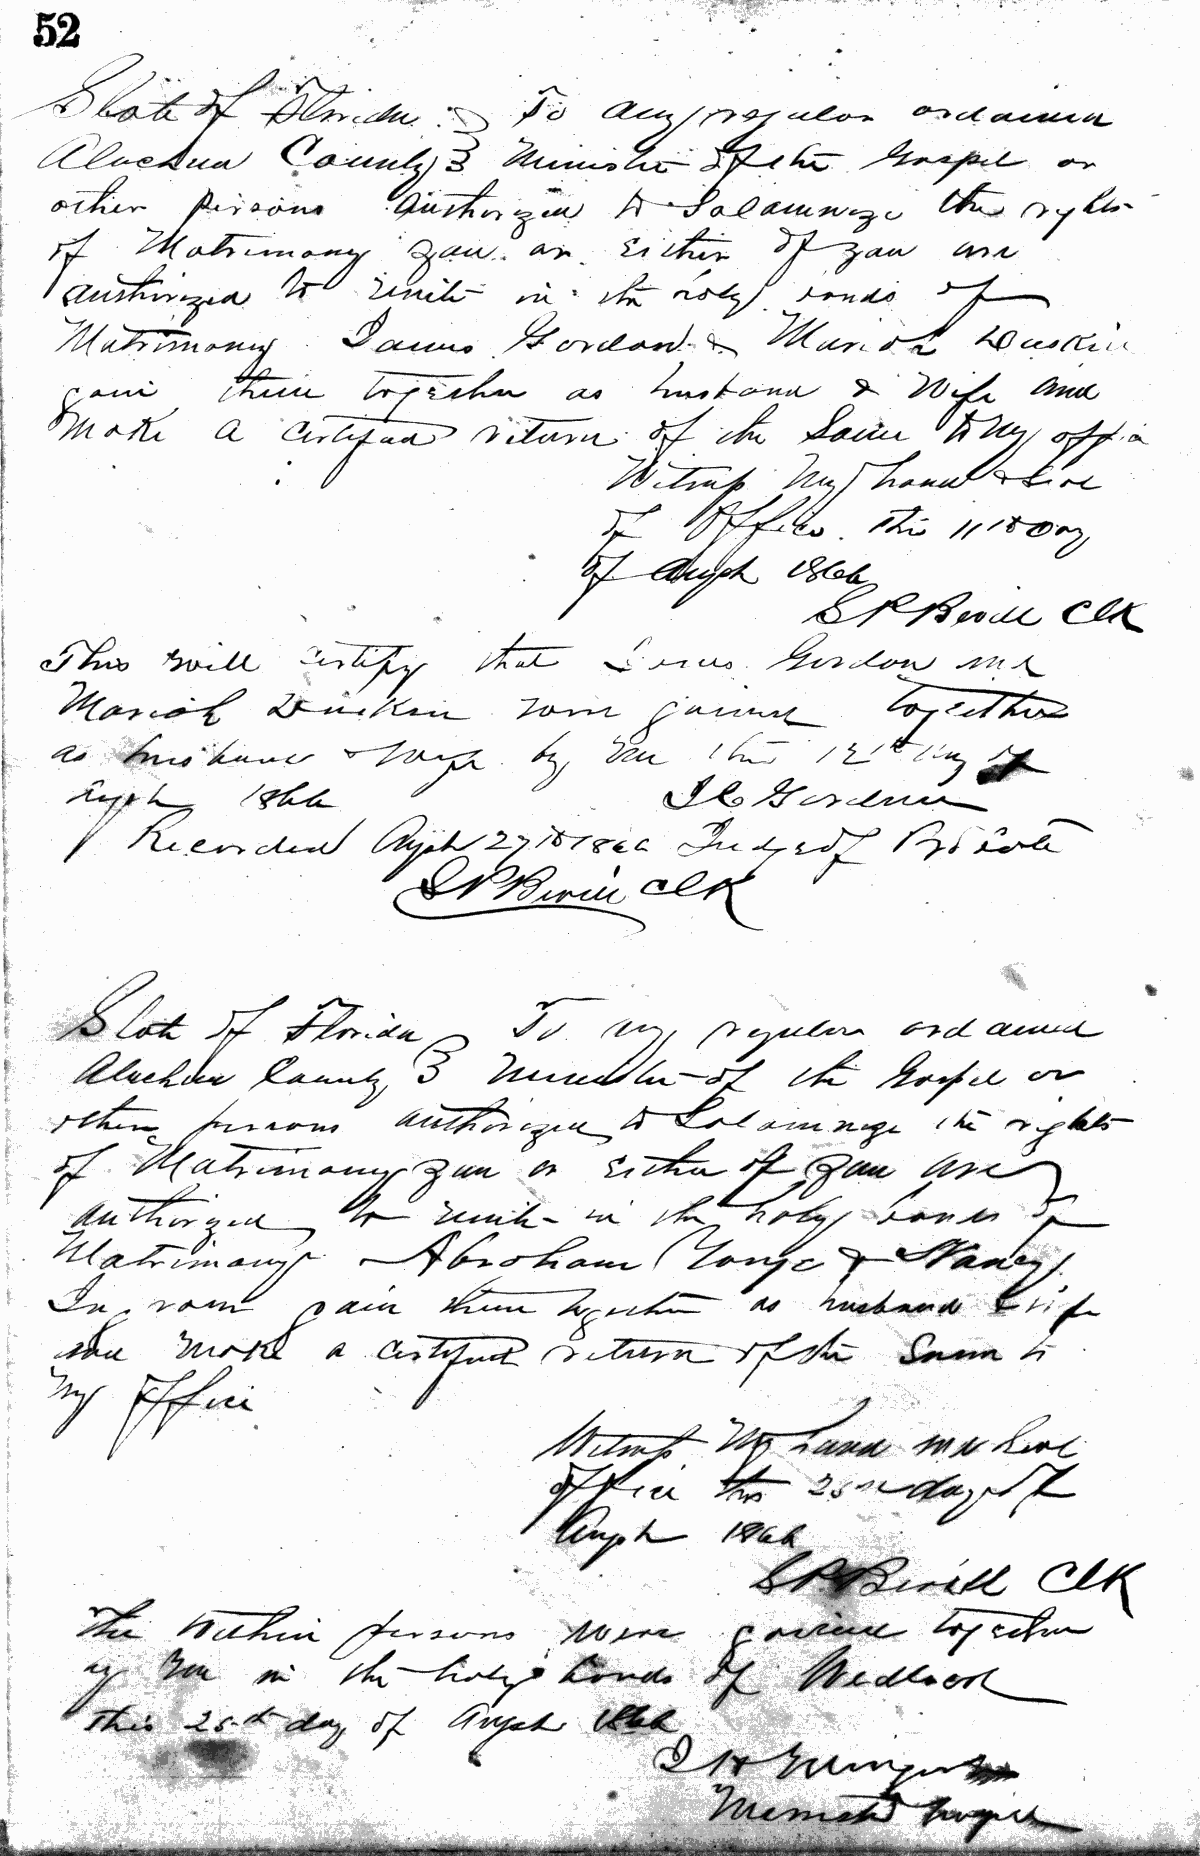 52
State of Florida } To any regular ordained
Alachua County } Minister of the Gospel or
other persons authorized to Solamnize the rights
of Matrimony you or either of you are
authorized to unite in the holy bonds of
Matrimony James Gordon & Mariah Duskin
join them together as husband & Wife and
Make a certified return of the Same to My office
Witness My hand & Seal
of Office this 11th Day
of Augst 1866
S P Bevill Clk
This will certify that James Gordon and
Mariah Duskin were joined together
as husband & Wife by me this 12th day of
Augst 1866
Recorded Augst 27th 1866 Judge of Probate
S P Bevill Clk
State of Florida } To any regular ordained
Alachua County } Minister of the Gospel or
other persons authorized to Solamnize the rights
of Matrimony you or either of you are
authorized to unite in the holy bonds of
Matrimony Abraham & Nancy
join them together as husband & wife
and Make a certified return of the Same to
My Office
Witness My hand and Seal
office this day of
Augst 1866
S P Bevill Clk
The Within persons were joined together
by me in the holy bonds of Wedlock
this 25th day of Augst 1866
Gospel